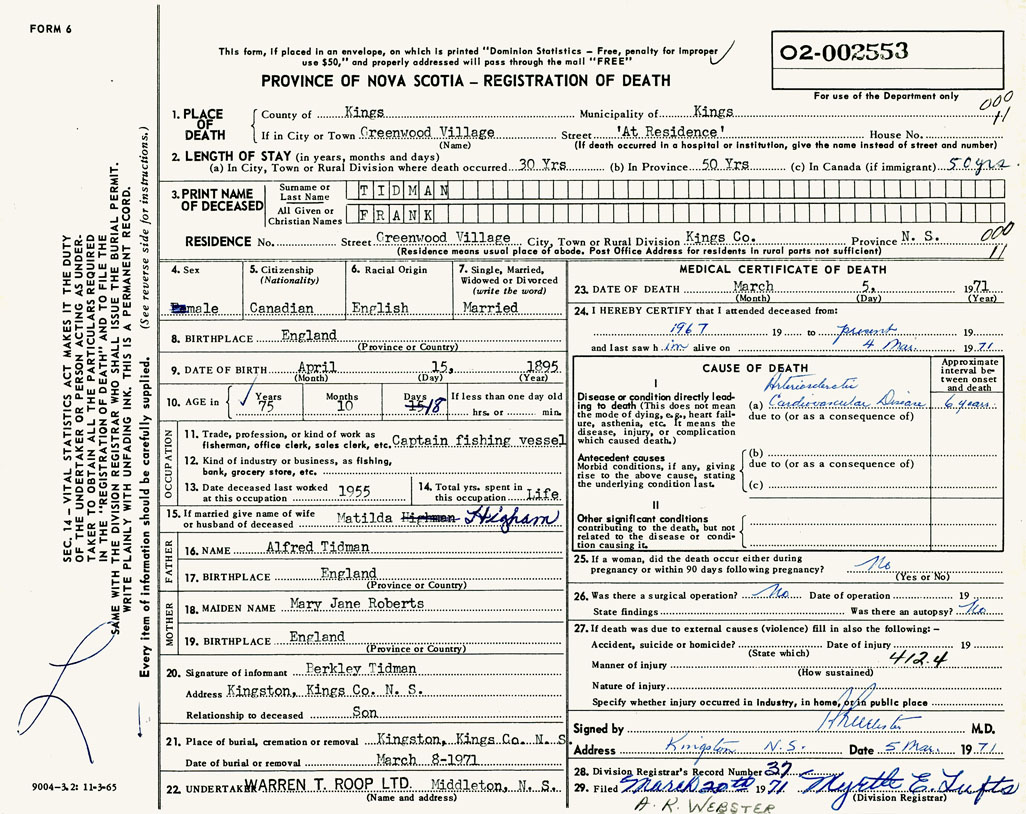 FORM 6
This form, if placed in an envelope, on which is printed "Dominion Statistics – Free, penalty for improper
use $50," and properly addressed will pass through the mail "FREE"
PROVINCE OF NOVA SCOTIA – REGISTRATION OF DEATH
02-002553
For use of the Department only
000
11
1. PLACE OF DEATH
County of Kings Municipality of Kings
If in City or Town Greenwood Village Street 'At Residence' House No.
(Name) (If death occurred in a hospital or institution, give the name instead of street and number)
2. LENGTH OF STAY (in years, months and days)
(a) In City, Town or Rural Division where death occurred 30 Yrs (b) In Province 50 Yrs (c) In Canada (if immigrant) 50 yrs.
3. PRINT NAME OF DECEASED
Surname or Last Name TIDMAN
All Given or Christian Names FRANK
RESIDENCE No. Street Greenwood Village City, Town or Rural Division Kings Co. Province N. S.
(Residence means usual place of abode. Post Office Address for residents in rural parts not sufficient)
000
11
4. Sex
male
5. Citizenship
(Nationality)
Canadian
6. Racial Origin
English
7. Single, Married,
Widowed or Divorced
(write the word)
Married
8. BIRTHPLACE England
(Province or Country)
9. DATE OF BIRTH April 15, 1895
(Month) (Day) (Year)
10. AGE in Years 75 Months 10 Days 15 18 If less than one day old
hrs. or min.
OCCUPATION
11. Trade, profession, or kind of work as
fisherman, office clerk, sales clerk, etc. Captain fishing vessel
12. Kind of industry or business, as fishing,
bank, grocery store, etc.
13. Date deceased last worked
at this occupation 1955
14. Total yrs. spent in
this occupation Life
15. If married give name of wife
or husband of deceased Matilda Highman Higham
FATHER
16. NAME Alfred Tidman
17. BIRTHPLACE England
(Province or Country)
MOTHER
18. MAIDEN NAME Mary Jane Roberts
19. BIRTHPLACE England
(Province or Country)
20. Signature of informant Perkley Tidman
Address Kingston, Kings Co. N. S.
Relationship to deceased Son
21. Place of burial, cremation or removal Kingston, Kings Co. N. S.
Date of burial or removal March 8-1971
22. UNDERTAK WARREN T. ROOP LTD. Middleton, N. S.
(Name and address)
MEDICAL CERTIFICATE OF DEATH
23. DATE OF DEATH March 5, 1971
(Month) (Day) (Year)
24. I HEREBY CERTIFY that I attended deceased from:
1967 19 to present 19
and last saw h im alive on 4 Mar. 1971
CAUSE OF DEATH
Approximate
interval be-
tween onset
and death
I
Disease or condition directly lead-
ing to death (This does not mean
the mode of dying, e.g., heart fail-
ure, asthenia, etc. It means the
disease, injury, or complication
which caused death.)
Arteriosclerotic
(a) Cardiovascular Disease 6 years
due to (or as a consequence of)
Antecedent causes
Morbid conditions, if any, giving
rise to the above cause, stating
the underlying condition last.
(b)
due to (or as a consequence of)
(c)
II
Other significant conditions
contributing to the death, but not
related to the disease or condi-
tion causing it.
25. If a woman, did the death occur either during
pregnancy or within 90 days following pregnancy? No
(Yes or No)
26. Was there a surgical operation? No Date of operation 19
State findings Was there an autopsy? No
27. If death was due to external causes (violence) fill in also the following: –
Accident, suicide or homicide? Date of injury 19
(State which)
412.4
Manner of injury
(How sustained)
Nature of injury
Specify whether injury occurred in Industry, in home, or in public place
Signed by M.D.
Address Kingston N.S. Date 5 Mar. 1971
28. Division Registrar's Record Number 37
29. Filed March 20th 1971 Myrtle E. Tufts
(Division Registrar)
A. K. WEBSTER
SEC. 14 – VITAL STATISTICS ACT MAKES IT THE DUTY
OF THE UNDERTAKER OR PERSON ACTING AS UNDER-
TAKER TO OBTAIN ALL THE PARTICULARS REQUIRED
IN THE "REGISTRATION OF DEATH" AND TO FILE THE
SAME WITH THE DIVISION REGISTRAR WHO SHALL ISSUE THE BURIAL PERMIT.
WRITE PLAINLY WITH UNFADING INK. THIS IS A PERMANENT RECORD.
Every item of information should be carefully supplied. (See reverse side for instructions.)
9004-3.2: 11-3-65